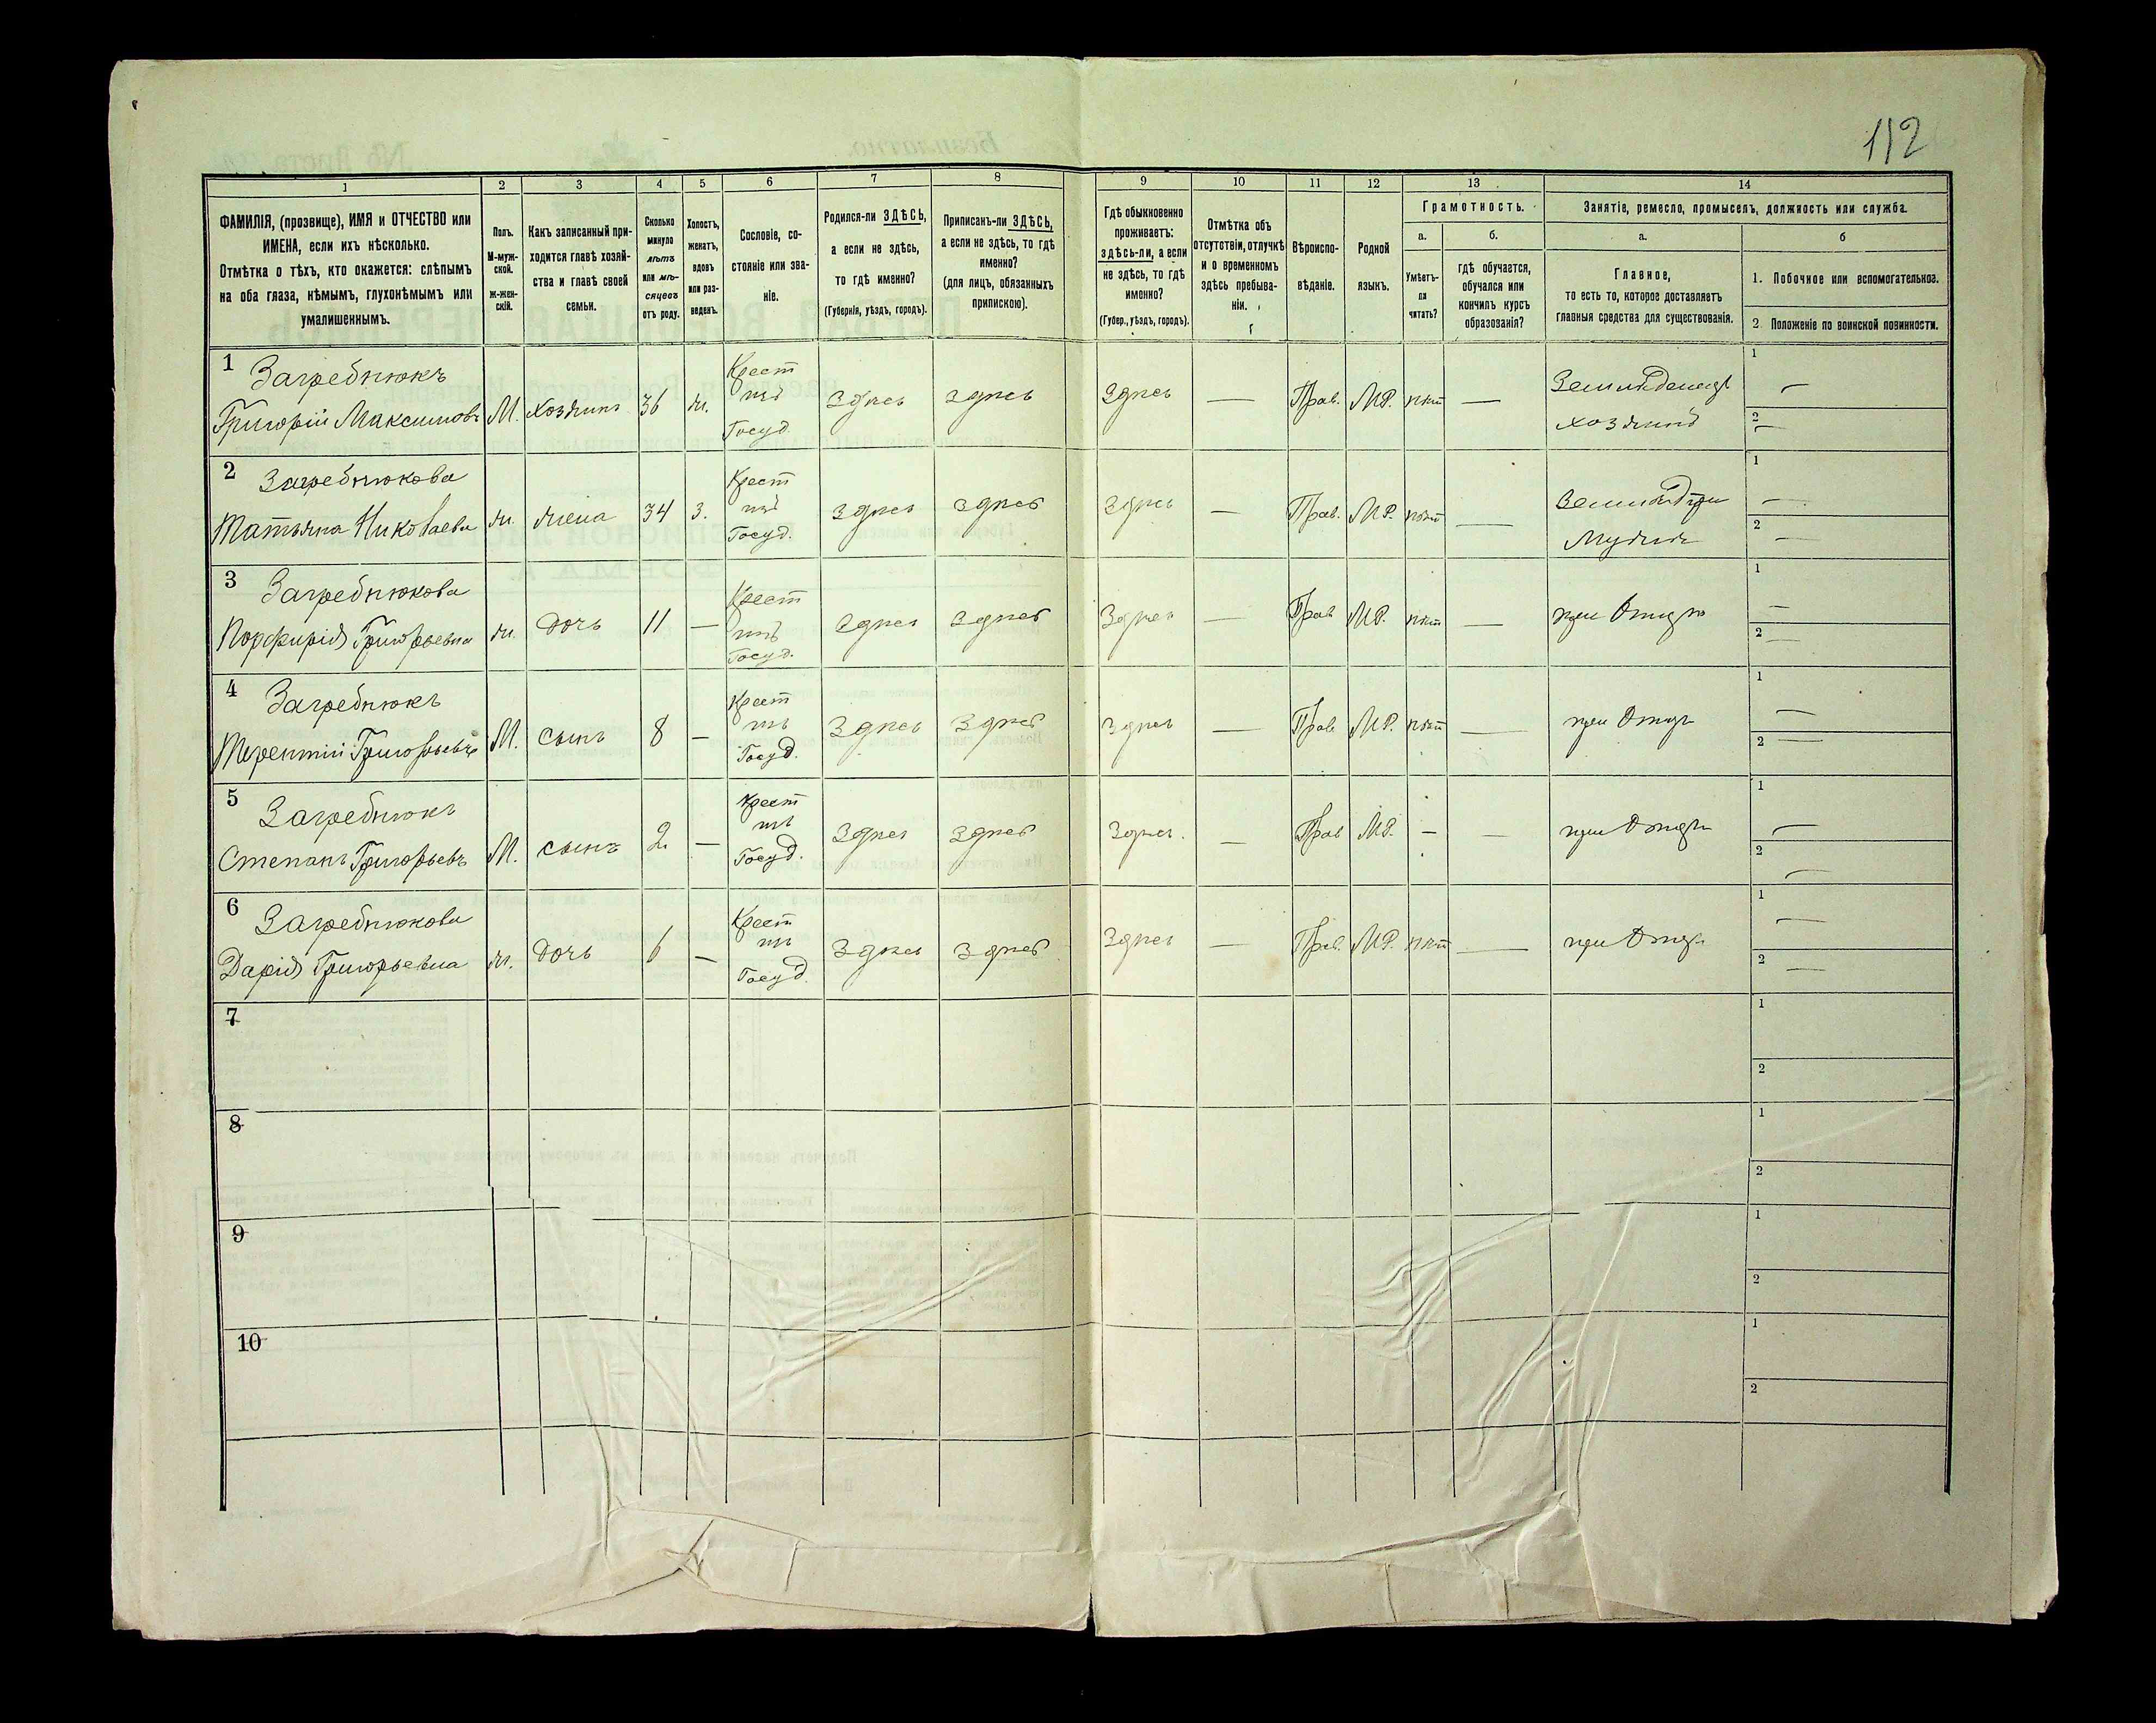 112
1 2 3 4 5 6 7 8 9 10 11 12 13 14
ФАМИЛІЯ, (прозвище), ИМЯ и ОТЧЕСТВО или
ИМЕНА, если ихъ нѣсколько.
Отмѣтка о тѣхъ, кто окажется: слѣпымъ
на оба глаза, нѣмымъ, глухонѣмымъ или
умалишеннымъ.
Полъ.
М-муж-
ской.
ж-жен-
скій.
Какъ записанный при-
ходится главѣ хозяй-
ства и главѣ своей
семьи.
Сколько
минуло
лѣтъ
или мѣ-
сяцевъ
отъ роду.
Холостъ,
женатъ,
вдовъ
или раз-
веденъ.
Сословіе, со-
стояніе или зва-
ніе.
Родился-ли ЗДѢСЬ,
а если не здѣсь,
то гдѣ именно?
(Губернія, уѣздъ, городъ).
Приписанъ-ли ЗДѢСЬ,
а если не здѣсь, то гдѣ
именно?
(для лицъ, обязанныхъ
припискою).
Гдѣ обыкновенно
проживаетъ:
здѣсь-ли, а если
не здѣсь, то гдѣ
именно?
(Губер., уѣздъ, городъ).
Отмѣтка объ
отсутствіи, отлучкѣ
и о временномъ
здѣсь пребыва-
ніи.
Вѣроиспо-
вѣданіе.
Родной
языкъ.
Грамотность.
а.
Умѣетъ-
ли
читать?
б.
гдѣ обучается,
обучался или
кончилъ курсъ
образованія?
Занятіе, ремесло, промыселъ, должность или служба.
а.
Главное,
то есть то, которое доставляетъ
главныя средства для существованія.
б
1. Побочное или вспомогательное.
2 Положеніе по воинской повинности.
1 Загребнюкъ
Григорій Максимовъ М. хозяинъ 36 ж. Крест нъ Госуд. Здѣсь Здѣсь Здѣсь — Прав. МР. нѣт — Земледелец хозяинъ 1 — 2 —
2 Загребнюкова
Татьяна Николаева ж. жена 34 з. Крест нъ Госуд. Здѣсь Здѣсь Здѣсь — Прав. МР. нѣт — при мужѣ 1 — 2 —
3 Загребнюкова
Порфирія Григорьевна ж. дочь 11 — Крест нъ Госуд. Здѣсь Здѣсь Здѣсь — Прав МР. нѣт — при Отцѣ 1 — 2 —
4 Загребнюкъ
Терентій Григорьевъ М. сынъ 8 — Крест нъ Госуд. Здѣсь Здѣсь Здѣсь — Прав МР. нѣт — при Отцѣ 1 — 2 —
5 Загребнюкъ
Степанъ Григорьевъ М. сынъ 2 — Крест нъ Госуд. Здѣсь Здѣсь Здѣсь. — Прав МР. — — при Отцѣ 1 — 2 —
6 Загребнюкова
Дарія Григорьевна ж. дочь 6 — Крест нъ Госуд. Здѣсь Здѣсь Здѣсь — Прав. МР. нѣт — при Отцѣ 1 — 2 —
7 1 2
8 1 2
9 1 2
10 1 2